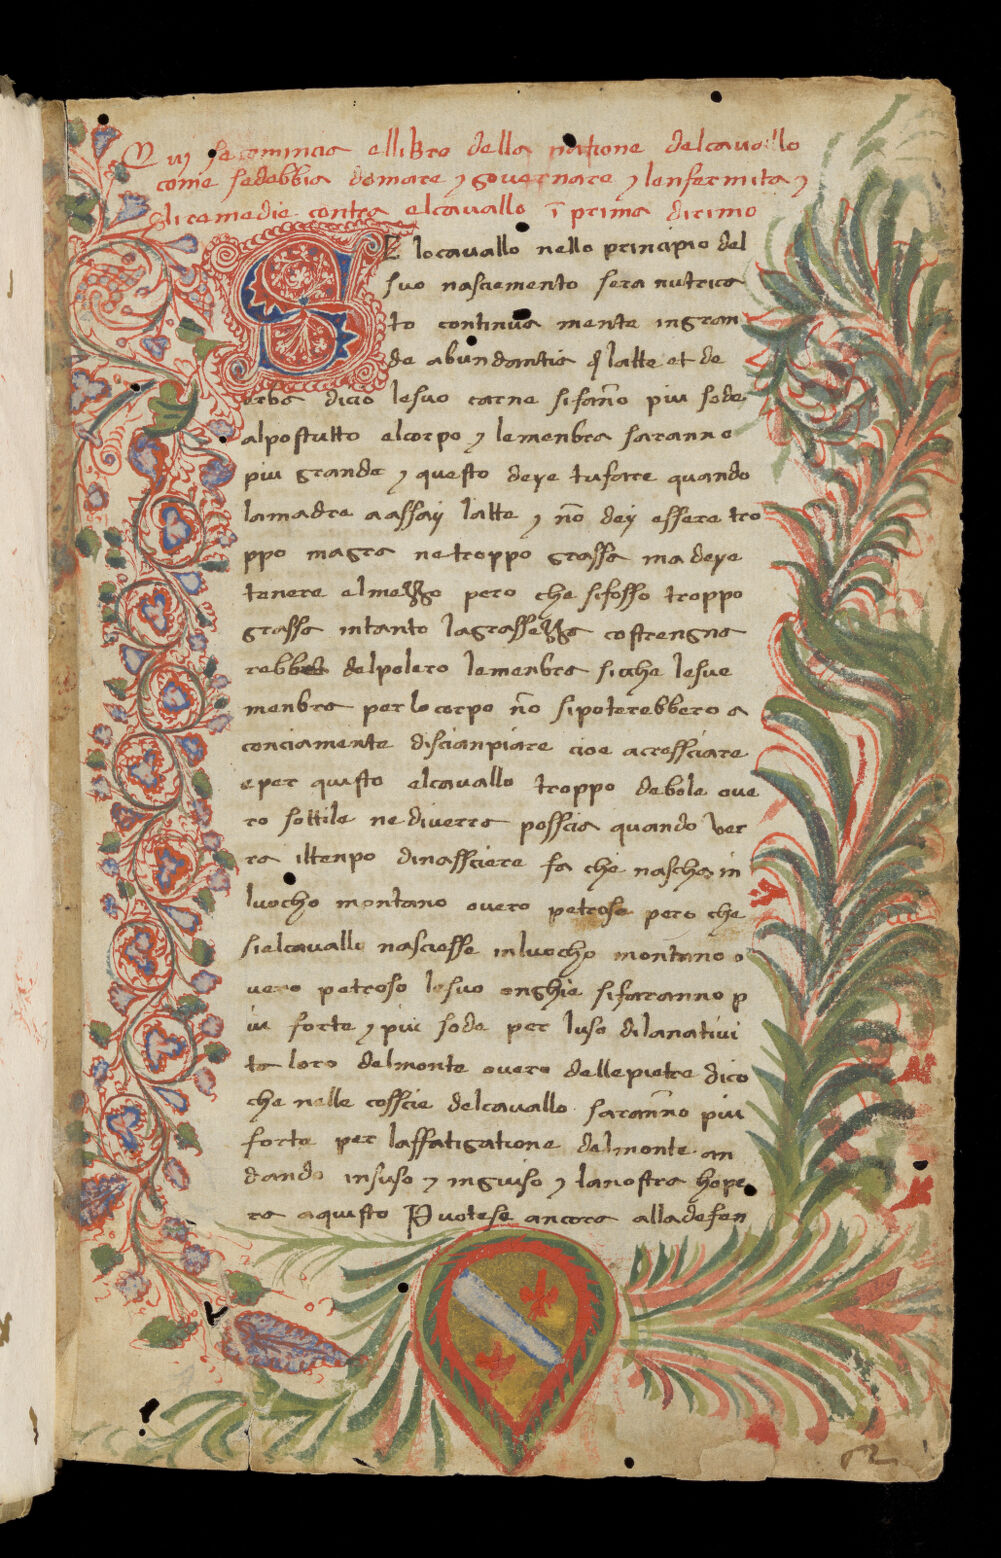 Qui se comincia ellibro della natione del cavallo
come sedebbia domare ⁊ governare ⁊ lenfermita ⁊
li remedie contra elcavallo ī prima dicimo
SE locavallo nello principio del
suo nasciemento sera nutrica
to continua mente ingran
de abundantia ql latte et de
erba dicio lesuo carne sifaño piu sode
alpostutto elcorpo ⁊ lemenbra saranno
piu grande ⁊ questo deye tufare quando
lamadre aassay latte ⁊ nō dey essere tro
ppo magra netroppo grassa ma deye
tenere elmezzo pero che sifosso troppo
grassa intanto lagrassezza costrengna
rebbet delpolero lemenbra sicche lesue
menbra perlocorpo ño sipoterebbero a
conciamente disciampiare cioe acressciare
eper quisto elcavallo troppo debole ove
ro sottile nediverra posscia quando ver
ra iltenpo dinassciere fa che nascha in
luocho montano overo petroso pero che
sielcavallo nasciesse inluocho montano o
vero petroso lesuo onghie sifaranno p
iu forte ⁊ piu sode per luso dilanativi
ta loro delmonte overo dellepietre dico
che nelle cosscie delcavallo saranño piu
forte per laffatigatione delmonte an
dando insuso ⁊ ingiuso ⁊ lanostra hope
ra aquisto Puotese ancora alladefen